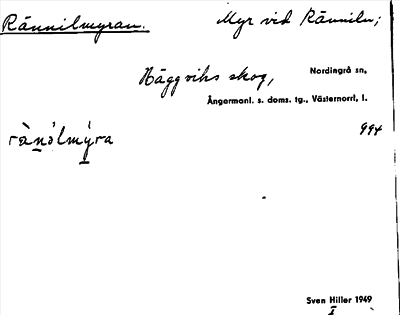 Rännilmyran. Myr vid Ränniln;
Häggviks skog, Nordingrå sn,
Ångermanl. s. doms. tg., Västernorrl. l.
994
Sven Hiller 1949